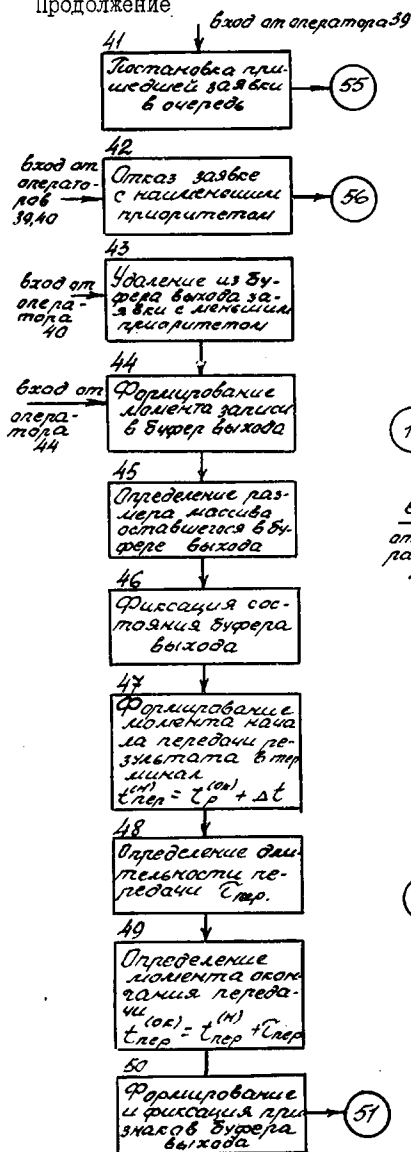 Продолжение
вход от оператора 39
41
Постановка при-
шедшей заявки
в очередь
55
42
вход от
операто-
ров
39,40
Отказ заявке
с наименьшим
приоритетом
56
43
вход от
опера-
тора
40
Удаление из бу-
фера выхода за-
явки с меньшим
приоритетом
44
вход от
опера-
тора
44
Формирование
момента записи
в буфер выхода
45
Определение раз-
мера массива
оставшегося в бу-
фере выхода
46
Фиксация сос-
тояния буфера
выхода
47
Формирование
момента нача
ла передачи ре-
зультата в тер
минал
t_пер^(н) = t_р^(ок) + Δt
48
Определение дли-
тельности пе-
редачи τ_пер.
49
Определение
момента окон-
чания переда-
чи
t_пер^(ок) = t_пер^(н) + τ_пер
50
Формирование
и фиксация при
знаков буфера
выхода
51